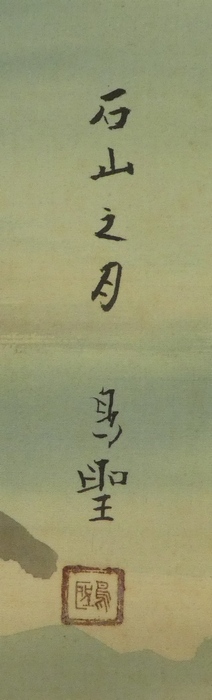 石山之月
鳥聖